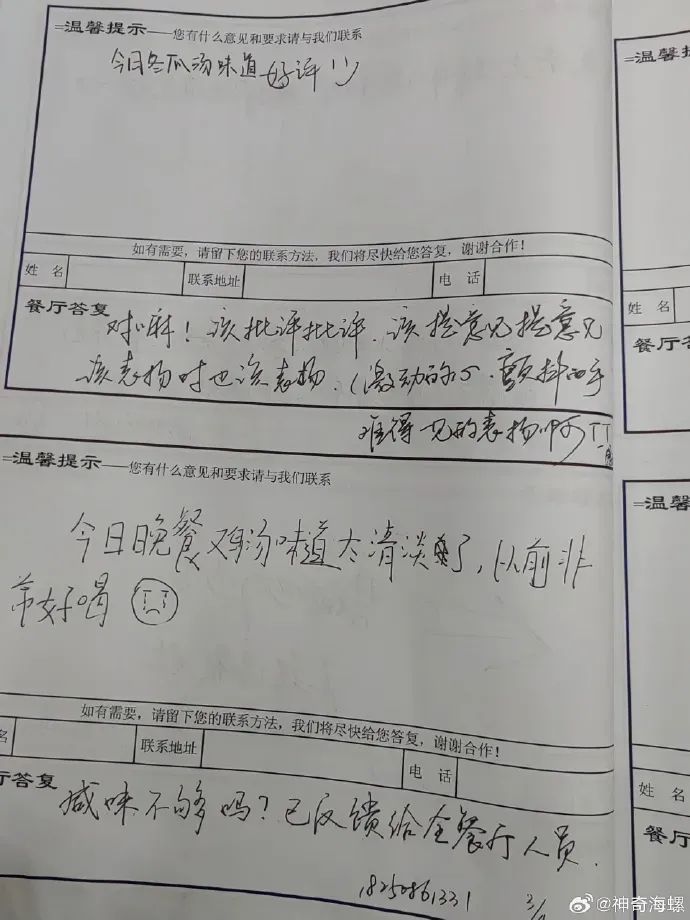 =温馨提示——您有什么意见和要求请与我们联系
今日冬瓜汤味道好评!!
如有需要，请留下您的联系方法，我们将尽快给您答复，谢谢合作！
姓 名 联系地址 电 话
餐厅答复
对嘛！该批评批评．该提意见提意见
该表扬时也该表扬．(激动的心．颤抖的手
难得一见的表扬啊TT
=温馨提示——您有什么意见和要求请与我们联系
今日晚餐鸡汤味道太清淡了，以前非
常好喝
如有需要，请留下您的联系方法，我们将尽快给您答复，谢谢合作！
名 联系地址 电 话
厅答复
咸味不够吗？已反馈给全餐厅人员．
18250861331
=温馨提示
姓 名
餐厅答
=温馨
姓 名
餐厅
@神奇海螺